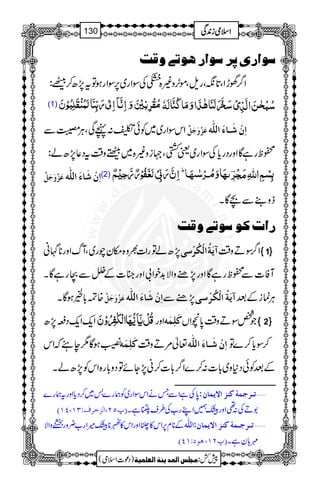 اسلامی زندگی 130
سواری پر سوار ہوتے وقت
اگر گھوڑا، تانگہ، ریل، موٹر وغیرہ خشکی کی سواری پر سوار ہو تو یہ پڑھ کر بیٹھے:
سُبْحٰنَ الَّذِیْ سَخَّرَ لَنَا هٰذَا وَمَا كُنَّا لَهٗ مُقْرِنِیْنَ وَ اِنَّاۤ اِلٰى رَبِّنَا لَمُنْقَلِبُوْنَ (1)
اِنْ شَآءَ اللّٰه عَزَّوَجَلَّ اس سواری میں کوئی تکلیف نہ پہنچے گی، ہر مصیبت سے
محفوظ رہے گا اور دریا کی سواری یعنی کشتی، جہاز وغیرہ میں بیٹھتے وقت یہ دعا پڑھ لے:
بِسْمِ اللّٰهِ مَجْرٖىهَا وَ مُرْسٰىهَا ؕ اِنَّ رَبِّیْ لَغَفُوْرٌ رَّحِیْمٌ (2) اِنْ شَآءَ اللّٰه عَزَّوَجَلَّ
ڈوبنے سے بچے گا۔
رات کو سوتے وقت
{1} اگر سوتے وقت اٰیَۃُ الْکُرْسِی پڑھ لے تو رات بھر وہ مکان چوری، آگ اور ناگہانی
آفات سے محفوظ رہے گا اور پڑھنے والا بدخوابی اور جنات کے خلل سے بچا رہے گا۔
ہر نماز کے بعد اٰیَۃُ الْکُرْسِی پڑھنے سے اِنْ شَآءَ اللّٰه عَزَّوَجَلَّ خاتمہ بالخیر ہوگا۔
{2} جو شخص سوتے وقت پانچواں کلمہ اور قُلْ یٰۤاَیُّهَا الْكٰفِرُوْنَ ایک ایک دفعہ پڑھ
کر سویا کرے تو اِنْ شَآءَ اللّٰه تعالٰی مرتے وقت کلمہ نصیب ہوگا مگر چاہئے کہ اس
کے بعد کوئی دنیاوی بات نہ کرے اگر بات کرنی پڑ جائے تو دوبارہ اس کو پڑھ لے۔
1 ……ترجمۂ کنز الایمان: پاکی ہے اسے جس نے اس سواری کو ہمارے بس میں کردیا اور یہ ہمارے
بوتے کی نہ تھی اور بیشک ہمیں اپنے رب کی طرف پلٹنا ہے۔(پ ۲۵، الزخرف: ۱۳، ۱۴)
2 ……ترجمۂ کنز الایمان: اللّٰہ کے نام پر اس کا چلنا اور اس کا ٹھہرنا بیشک میرا رب ضرور بخشنے والا
مہربان ہے۔(پ ۱۲، ھود: ۴۱)
پیش کش: مجلس المدینۃ العلمیۃ (دعوتِ اسلامی)